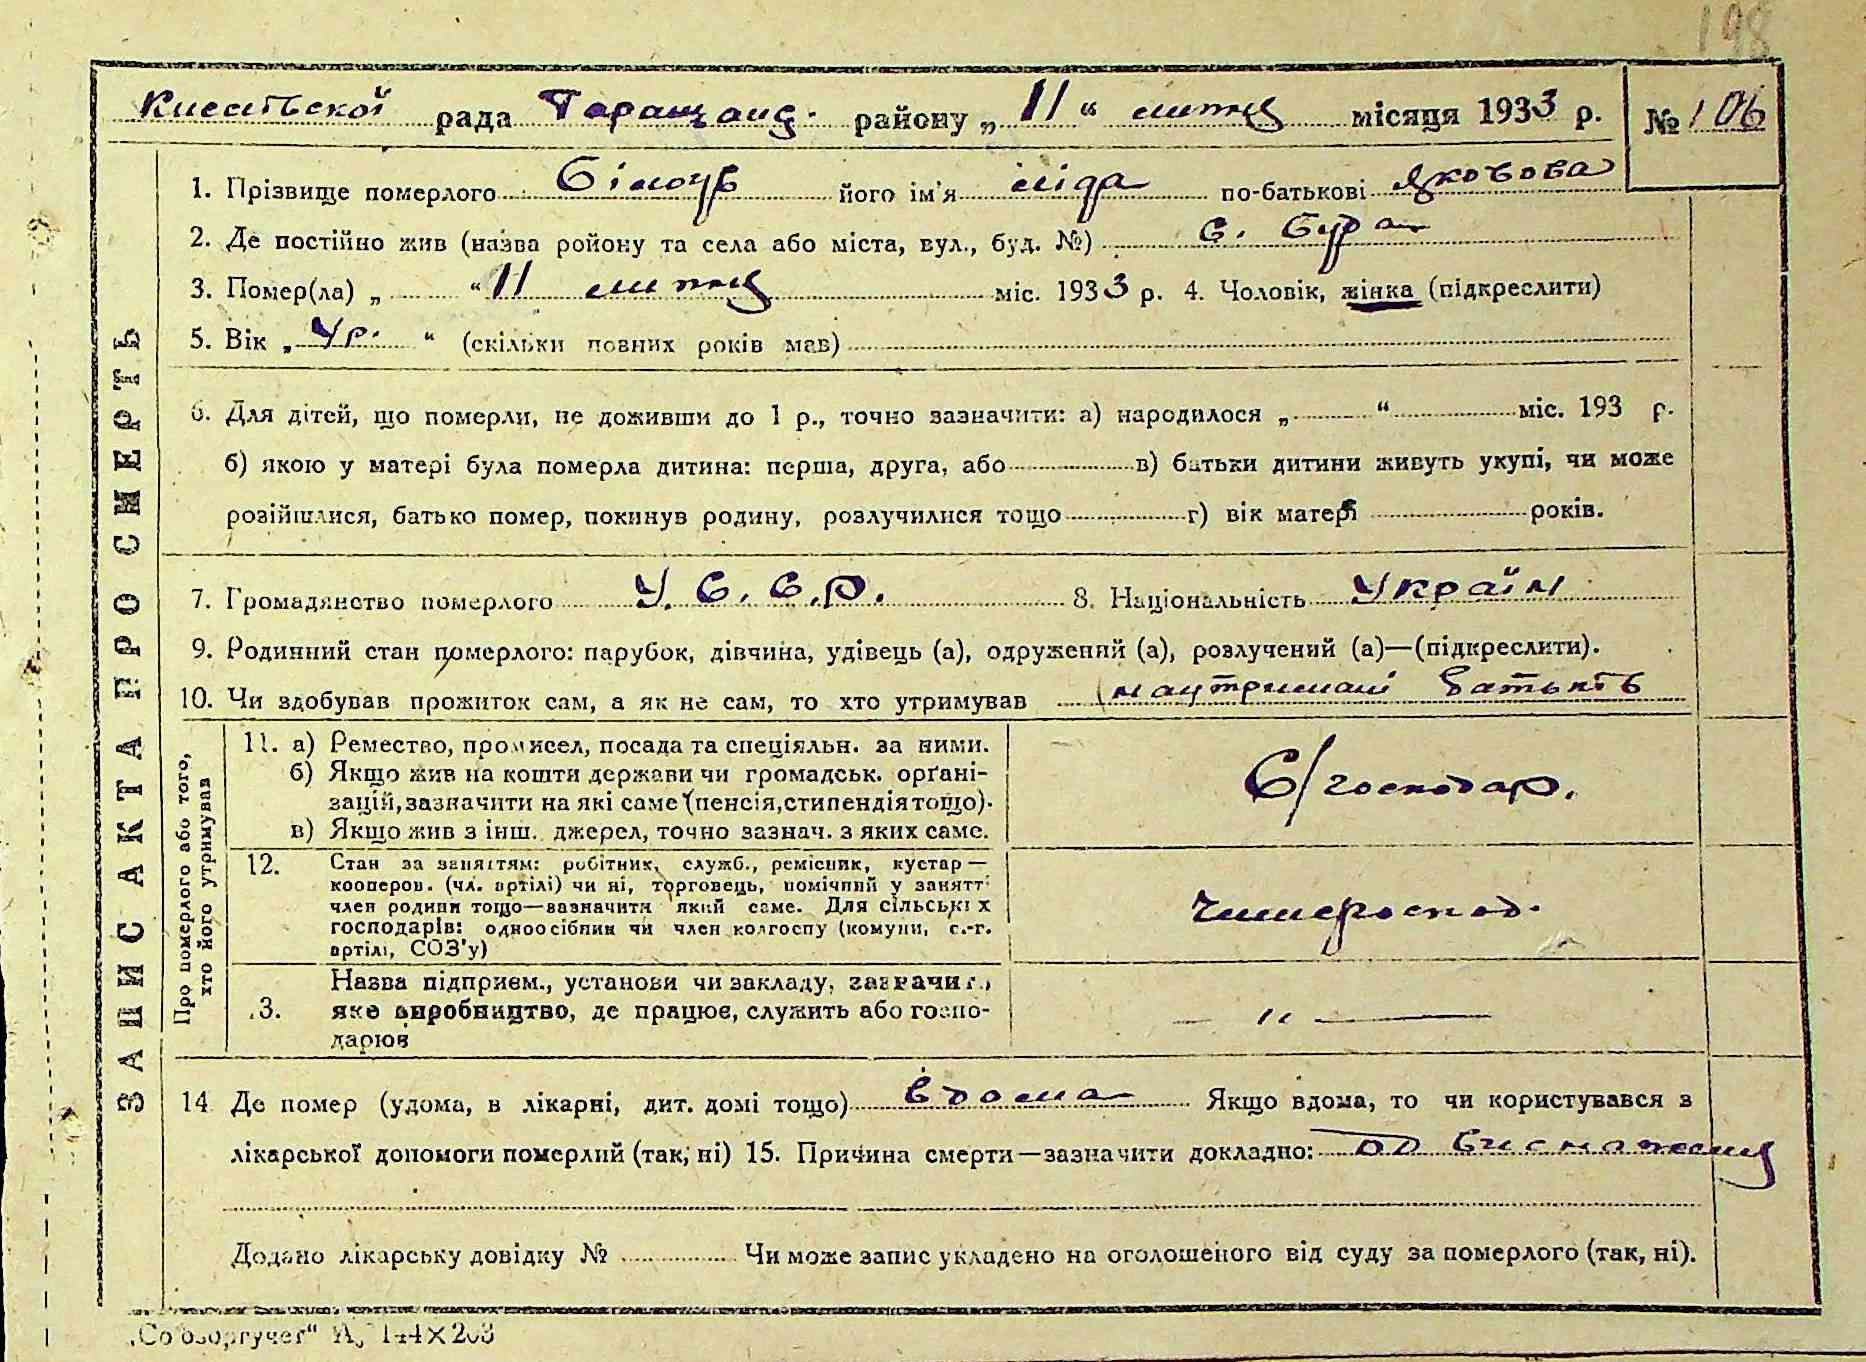 198
рада Таращанс. району „ 11 “ липня місяця 1933 р. № 106
1. Прізвище померлого його ім'я Ліда по-батькові Яковова
2. Де постійно жив (назва ройону та села або міста, вул., буд. №) с.
3. Помер(ла) „ “ 11 липня міс. 1933 р. 4. Чоловік, жінка (підкреслити)
5. Вік „ “ (скільки повних років мав)
6. Для дітей, що померли, не доживши до 1 р., точно зазначити: а) народилося „ “ міс. 193 р.
б) якою у матері була померла дитина: перша, друга, або в) батьки дитини живуть укупі, чи може
розійшлися, батько помер, покинув родину, розлучилися тощо г) вік матері років.
7. Громадянство померлого У.С.С.Р. 8. Національність Україн
9. Родинний стан померлого: парубок, дівчина, удівець (а), одружений (а), розлучений (а)—(підкреслити).
10. Чи здобував прожиток сам, а як не сам, то хто утримував батьків
ЗАПИС АКТА ПРО СМЕРТЬ
Про померлого або того,
хто його утримував
11. а) Ремество, промисел, посада та спеціяльн. за ними.
б) Якщо жив на кошти держави чи громадськ. орґані-
зацій, зазначити на які саме (пенсія, стипендія тощо).
в) Якщо жив з інш. джерел, точно зазнач. з яких саме.
С/господар.
12. Стан за заняттям: робітник, служб., ремісник, кустар —
кооперов. (чл. артілі) чи ні, торговець, помічний у занятт.
член родини тощо—вазначити який саме. Для сільських
господарів: одноосібник чи член колгоспу (комуни, с.-г.
артілі, СОЗ'у)
.3. Назва підприєм., установи чи закладу, зазначит.,
яке виробництво, де працює, служить або госпо-
дарюв
— " —
14 Де помер (удома, в лікарні, дит. домі тощо) вдома Якщо вдома, то чи користувався з
лікарської допомоги померлий (так, ні) 15. Причина смерти—зазначити докладно: од виснаження
Додано лікарську довідку № Чи може запис укладено на оголошеного від суду за померлого (так, ні).
144×203